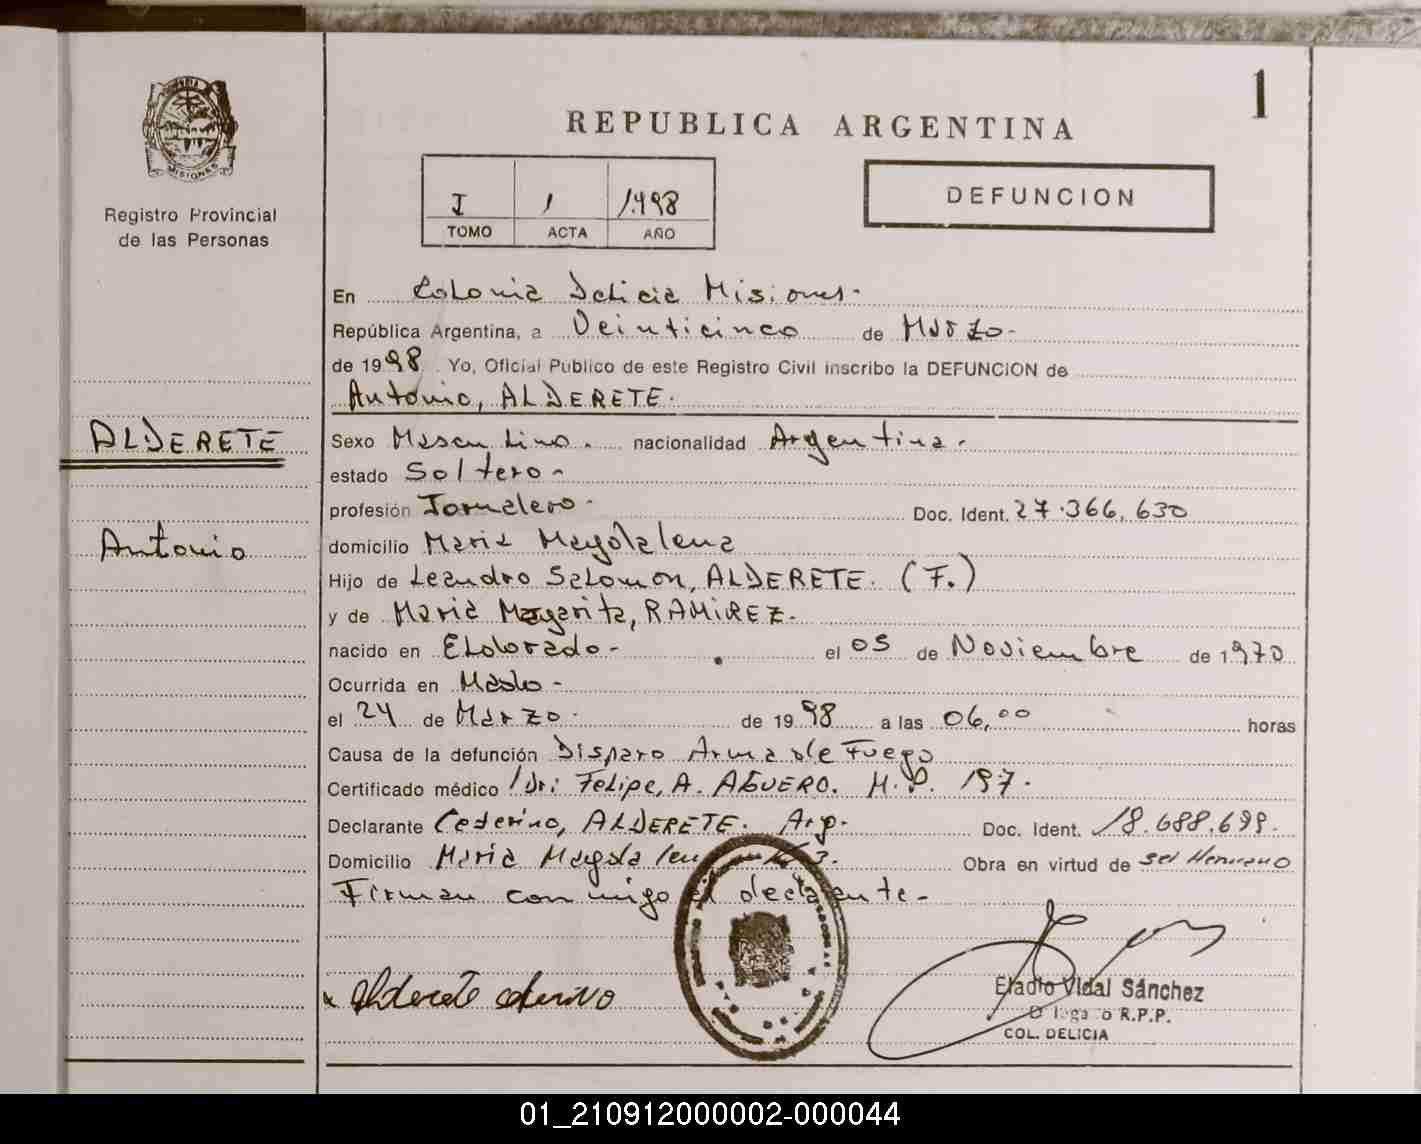 1
REPUBLICA ARGENTINA
MISIONES
Registro Provincial
de las Personas
I 1 1.998
TOMO ACTA AÑO
DEFUNCION
En Colonia Delicia Misiones.
República Argentina, a Veinticinco de Marzo-
de 1998. Yo, Oficial Publico de este Registro Civil inscribo la DEFUNCION de
Antonio, ALDERETE.
ALDERETE
Antonio
Sexo Masculino. nacionalidad Argentina.
estado Soltero-
profesión Jornalero- Doc. Ident. 27.366,630
domicilio Maria Magdalena
Hijo de Leandro Salomon, ALDERETE. (F.)
y de Maria Margarita, RAMIREZ.
nacido en Eldorado- el 05 de Noviembre de 1970
Ocurrida en Mado-
el 24 de Marzo. de 1998 a las 06,00 horas
Causa de la defunción Disparo Arma de Fuego
Certificado médico /Dr: Felipe, A. AGUERO. M.P. 197.
Declarante Ceferino, ALDERETE. Arg. Doc. Ident. 18.688.699.
Domicilio Maria Magdalena 3. Obra en virtud de ser Hermano
Firman conmigo el declarante-
alderete ceferino
Eladio Vidal Sánchez
Delegado R.P.P.
COL. DELICIA
01_210912000002-000044